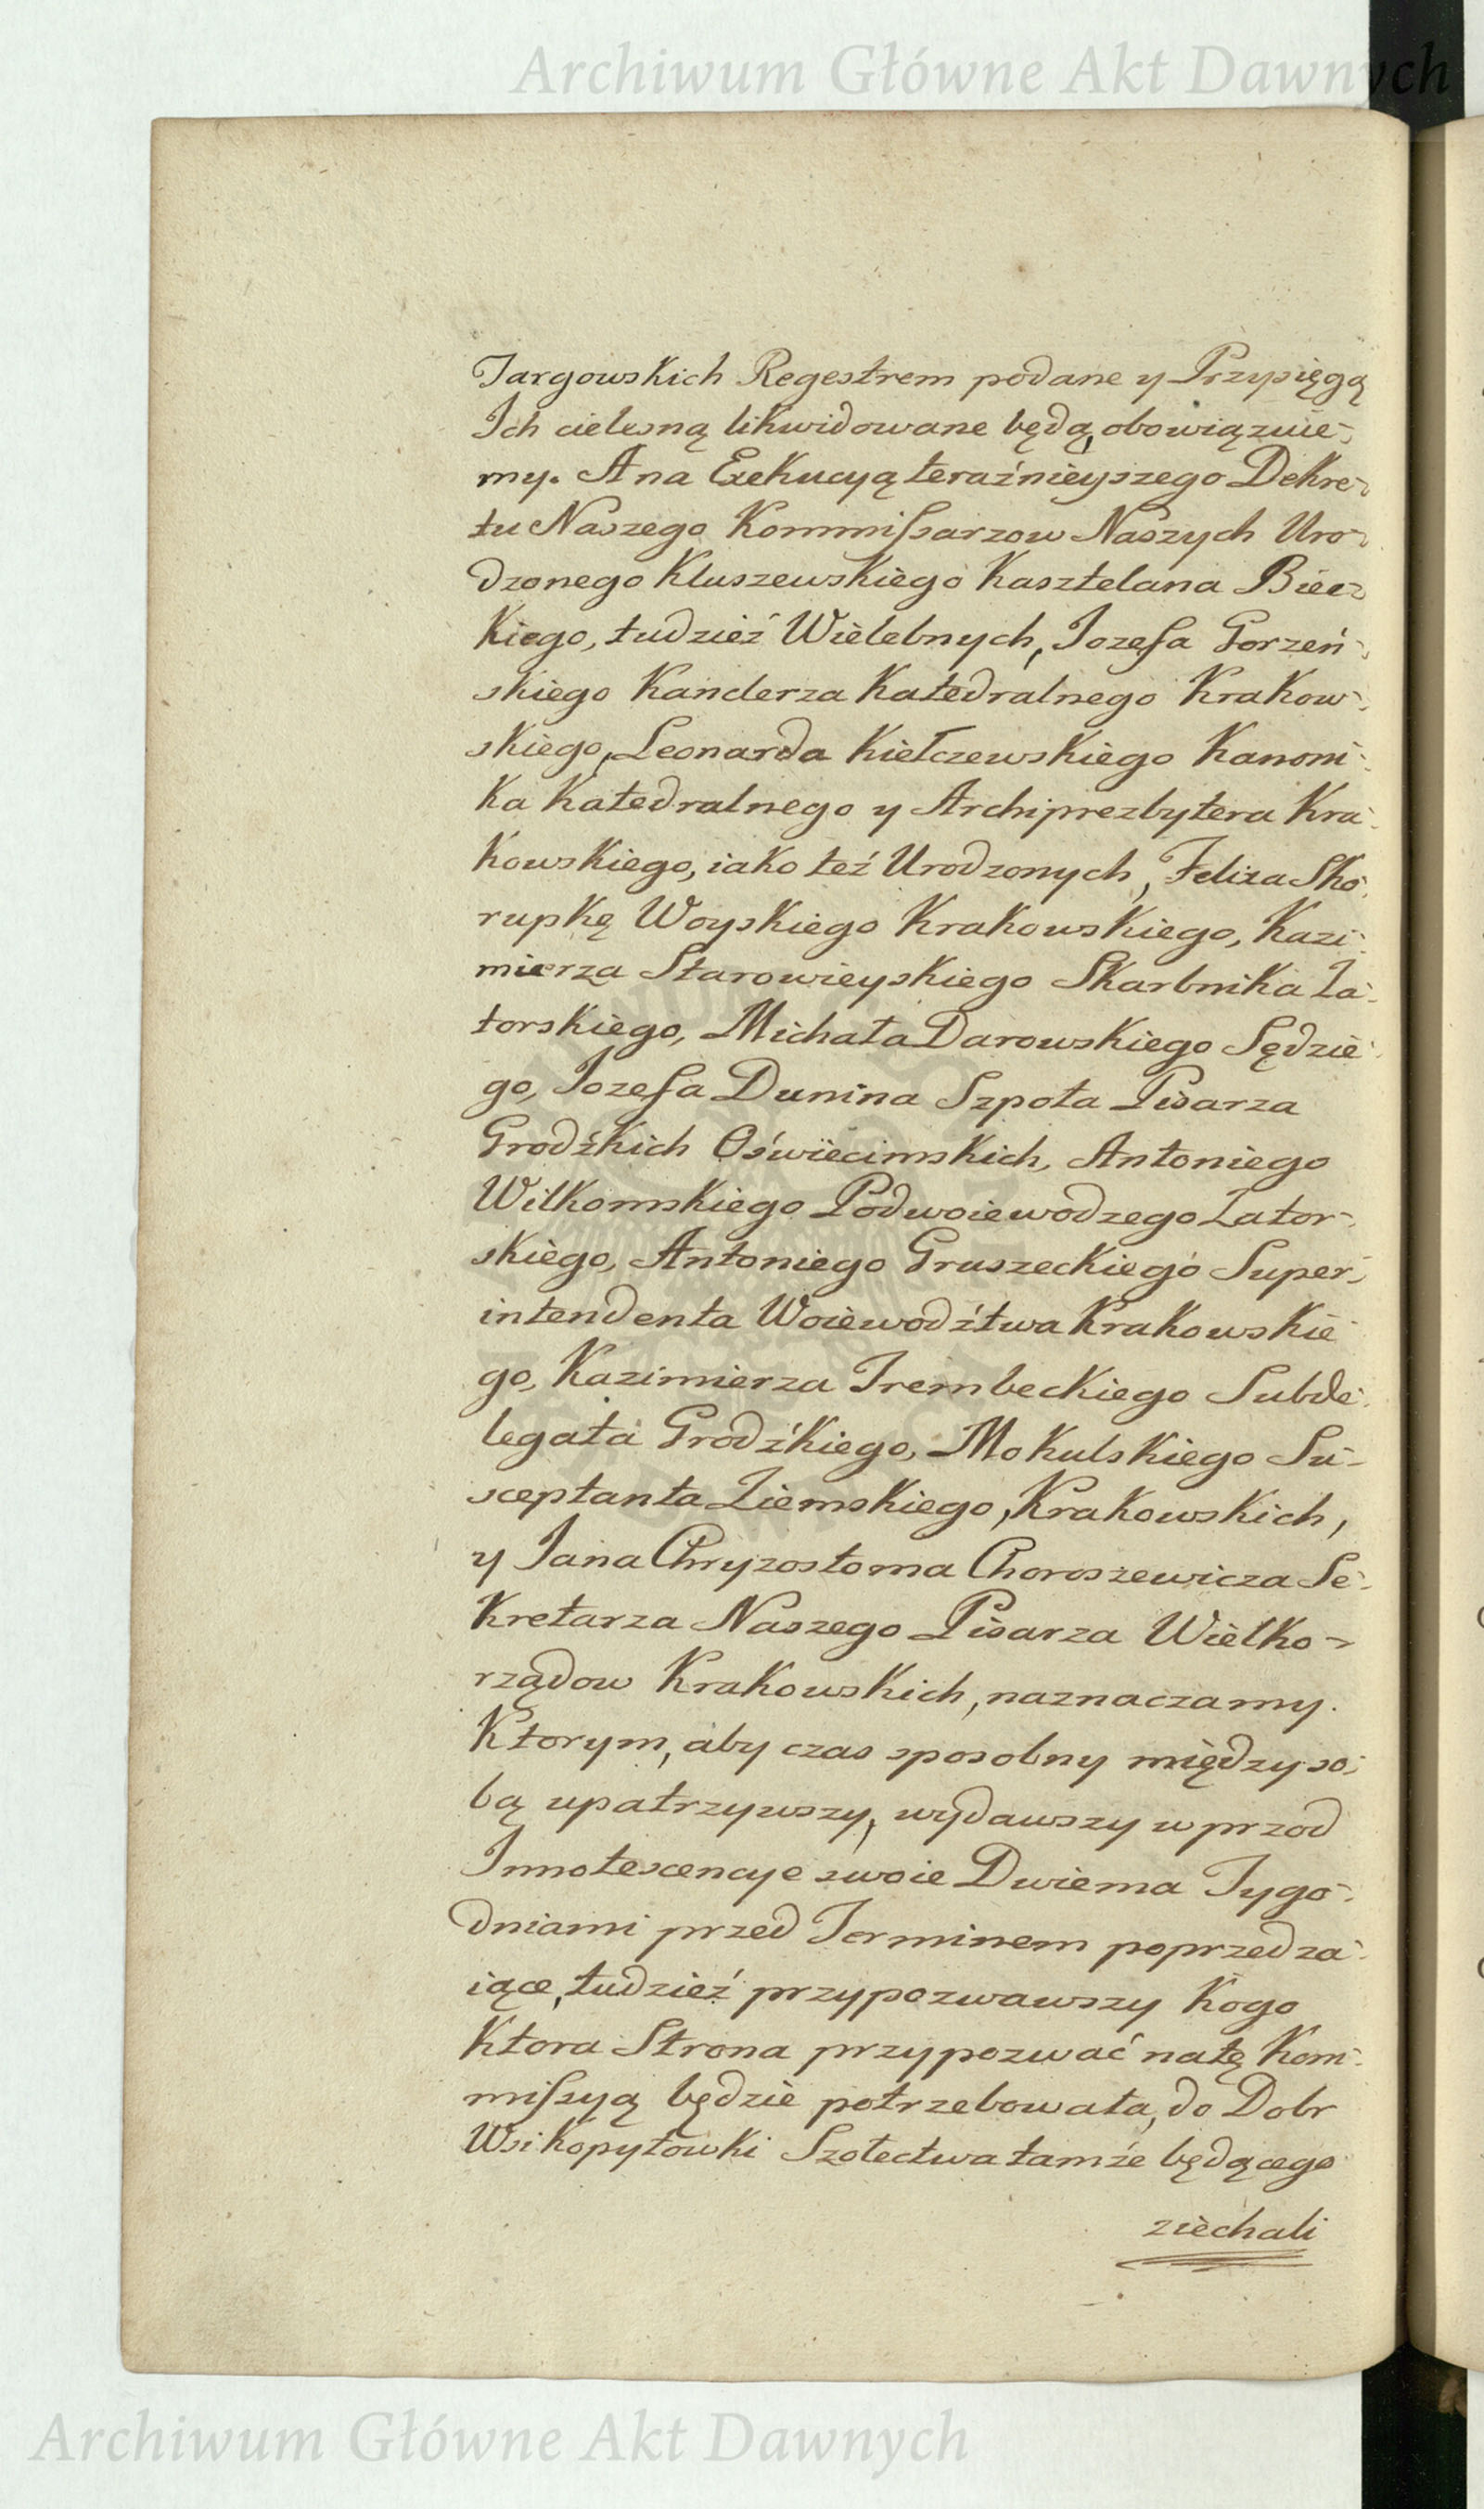 Archiwum Główne Akt Dawnych
Targowskich Regestrem podane y Przysięgą
Ich cielesną likwidowane będą, obowiązuie-
my. A na Exekucyą teraźnieyszego Dekre-
tu Naszego Kommissarzow Naszych Uro-
dzonego Kluszewskiego Kasztelana Biec-
kiego, tudzież Wielebnych, Jozefa Gorzeń-
skiego Kanclerza Katedralnego Krakow-
skiego, Leonarda Kiełczewskiego Kanoni-
ka Katedralnego y Archiprezbytera Kra-
kowskiego, iako też Urodzonych, Felixa Sko-
rupkę Woyskiego Krakowskiego, Kazi-
mierza Starowieyskiego Skarbnika Za-
torskiego, Michała Darowskiego Sędzie-
go, Jozefa Dunina Szpota Pisarza
Grodźkich Oświecimskich, Antoniego
Wilkomskiego Podwoiewodzego Zator-
skiego, Antoniego Gruszeckiego Super-
intendenta Woiewodźtwa Krakowskie-
go, Kazimierza Trembeckiego Subde-
legata Grodźkiego, Mokulskiego Su-
sceptanta Ziemskiego, Krakowskich,
y Jana Chryzostoma Choroszewicza Se-
kretarza Naszego Pisarza Wielko-
rządow Krakowskich, naznaczamy.
Ktorym, aby czas sposobny między so-
bą upatrzywszy, wydawszy wprzod
Innotescencye swoie Dwiema Tygo-
dniami przed Terminem poprzedza-
iące, tudzież przypozwawszy kogo
Ktora Strona przypozwać natę Kom-
missyą będzie potrzebowała, do Dobr
Wsi Kopytowki Szołectwa tamże będącego
ziechali
Archiwum Główne Akt Dawnych